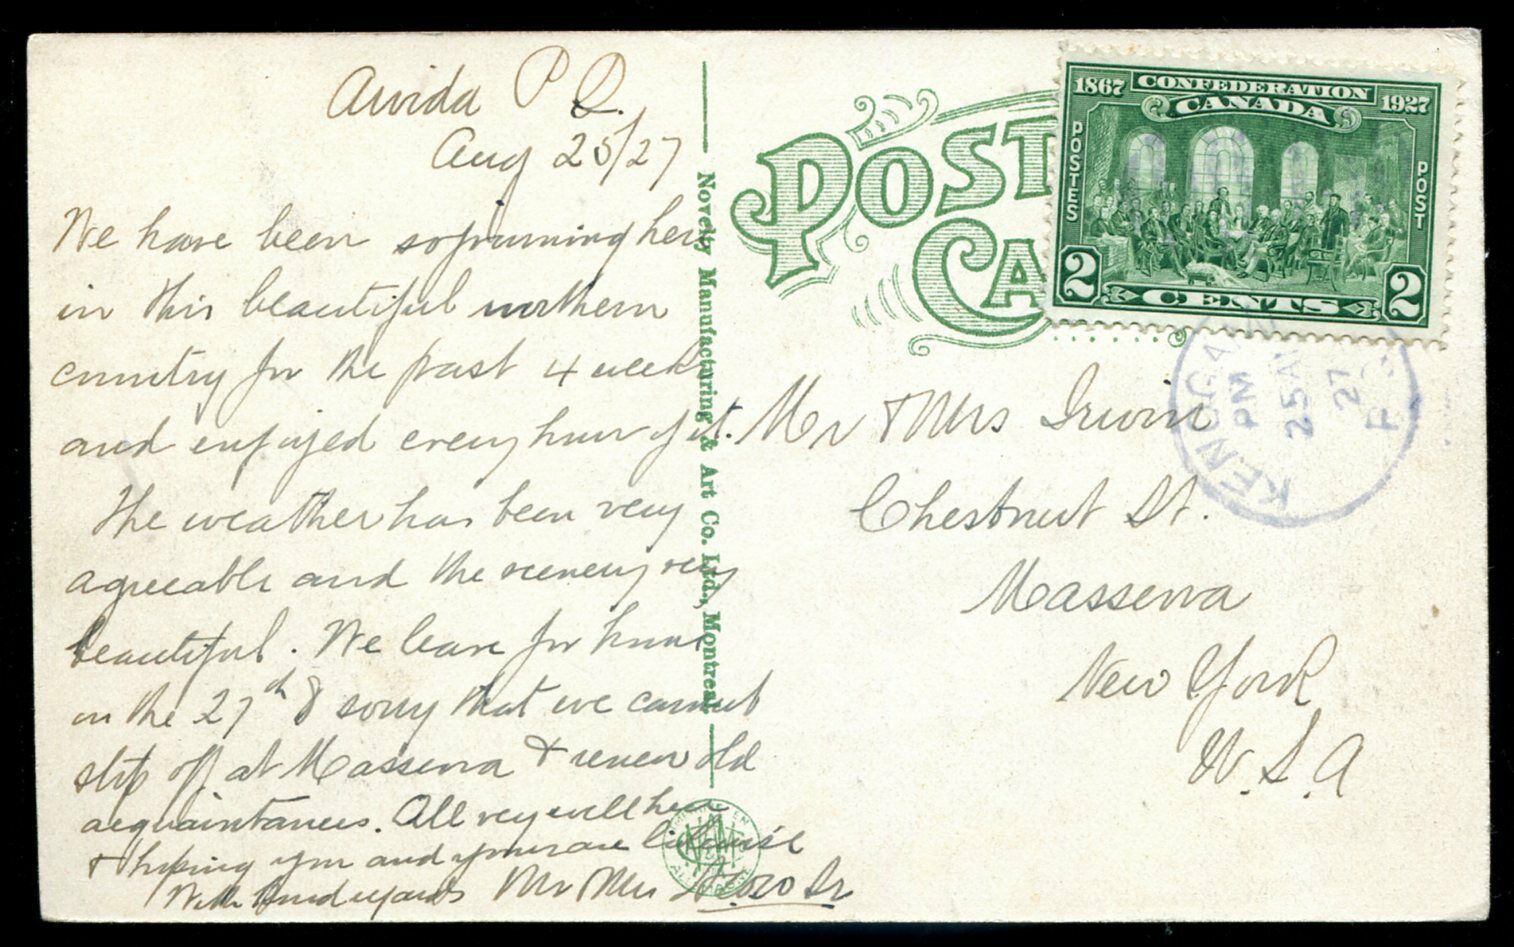 Arvida P Q.
Aug 25/27
We have been sojourning here
in this beautiful northern
country for the past 4 weeks
and enjoyed every hour of it.
The weather has been very
agreeable and the scenery very
beautiful. We leave for home
on the 27th & sorry that we cannot
stop off at Massena & renew old
acquaintances. All very well here
& hoping you and yours are likewise
With kind regards Mr Mrs Sr
Novelty Manufacturing & Art Co. Ltd., Montreal
POST
CA
1867 CONFEDERATION 1927
CANADA
POSTES
POST
2 CENTS 2
KENOGA
PM
25 AU
27
P.Q
Mr & Mrs Irwin
Chestnut St.
Massena
New York
U.S.A